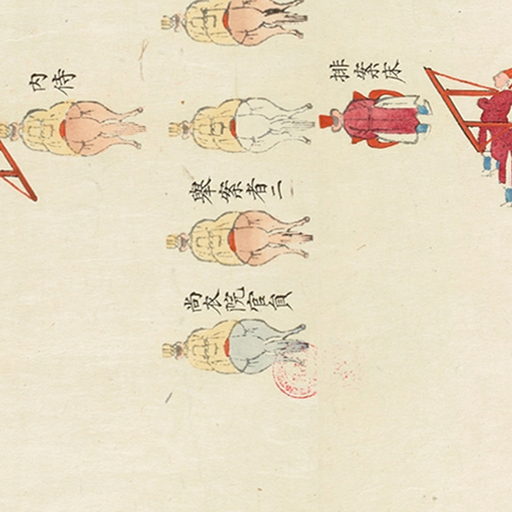 排案床
内侍
擧案者二
尚衣院官員